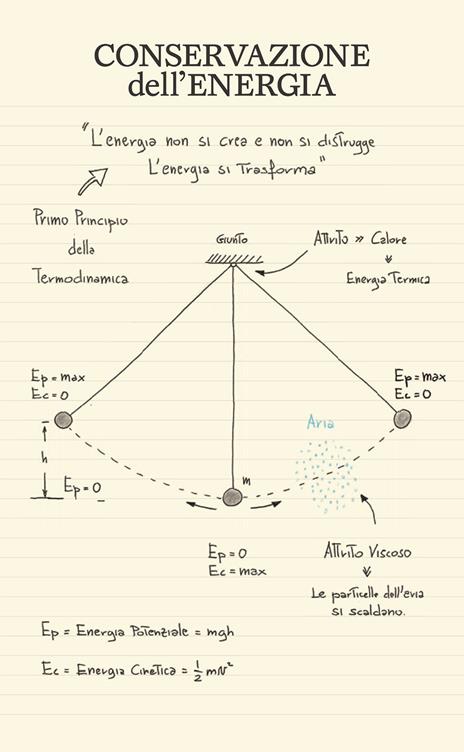 CONSERVAZIONE
dell'ENERGIA
"L'energia non si crea e non si distrugge
L'energia si Trasforma"
Primo Principio
della
Termodinamica
Giunto
Attrito » Calore
Energia Termica
Ep = max
Ec = 0
Ep = max
Ec = 0
Aria
h
Ep = 0
m
Ep = 0
Ec = max
Attrito Viscoso
Le particelle dell'aria
si scaldano.
Ep = Energia Potenziale = mgh
Ec = Energia Cinetica = 1/2 mv²